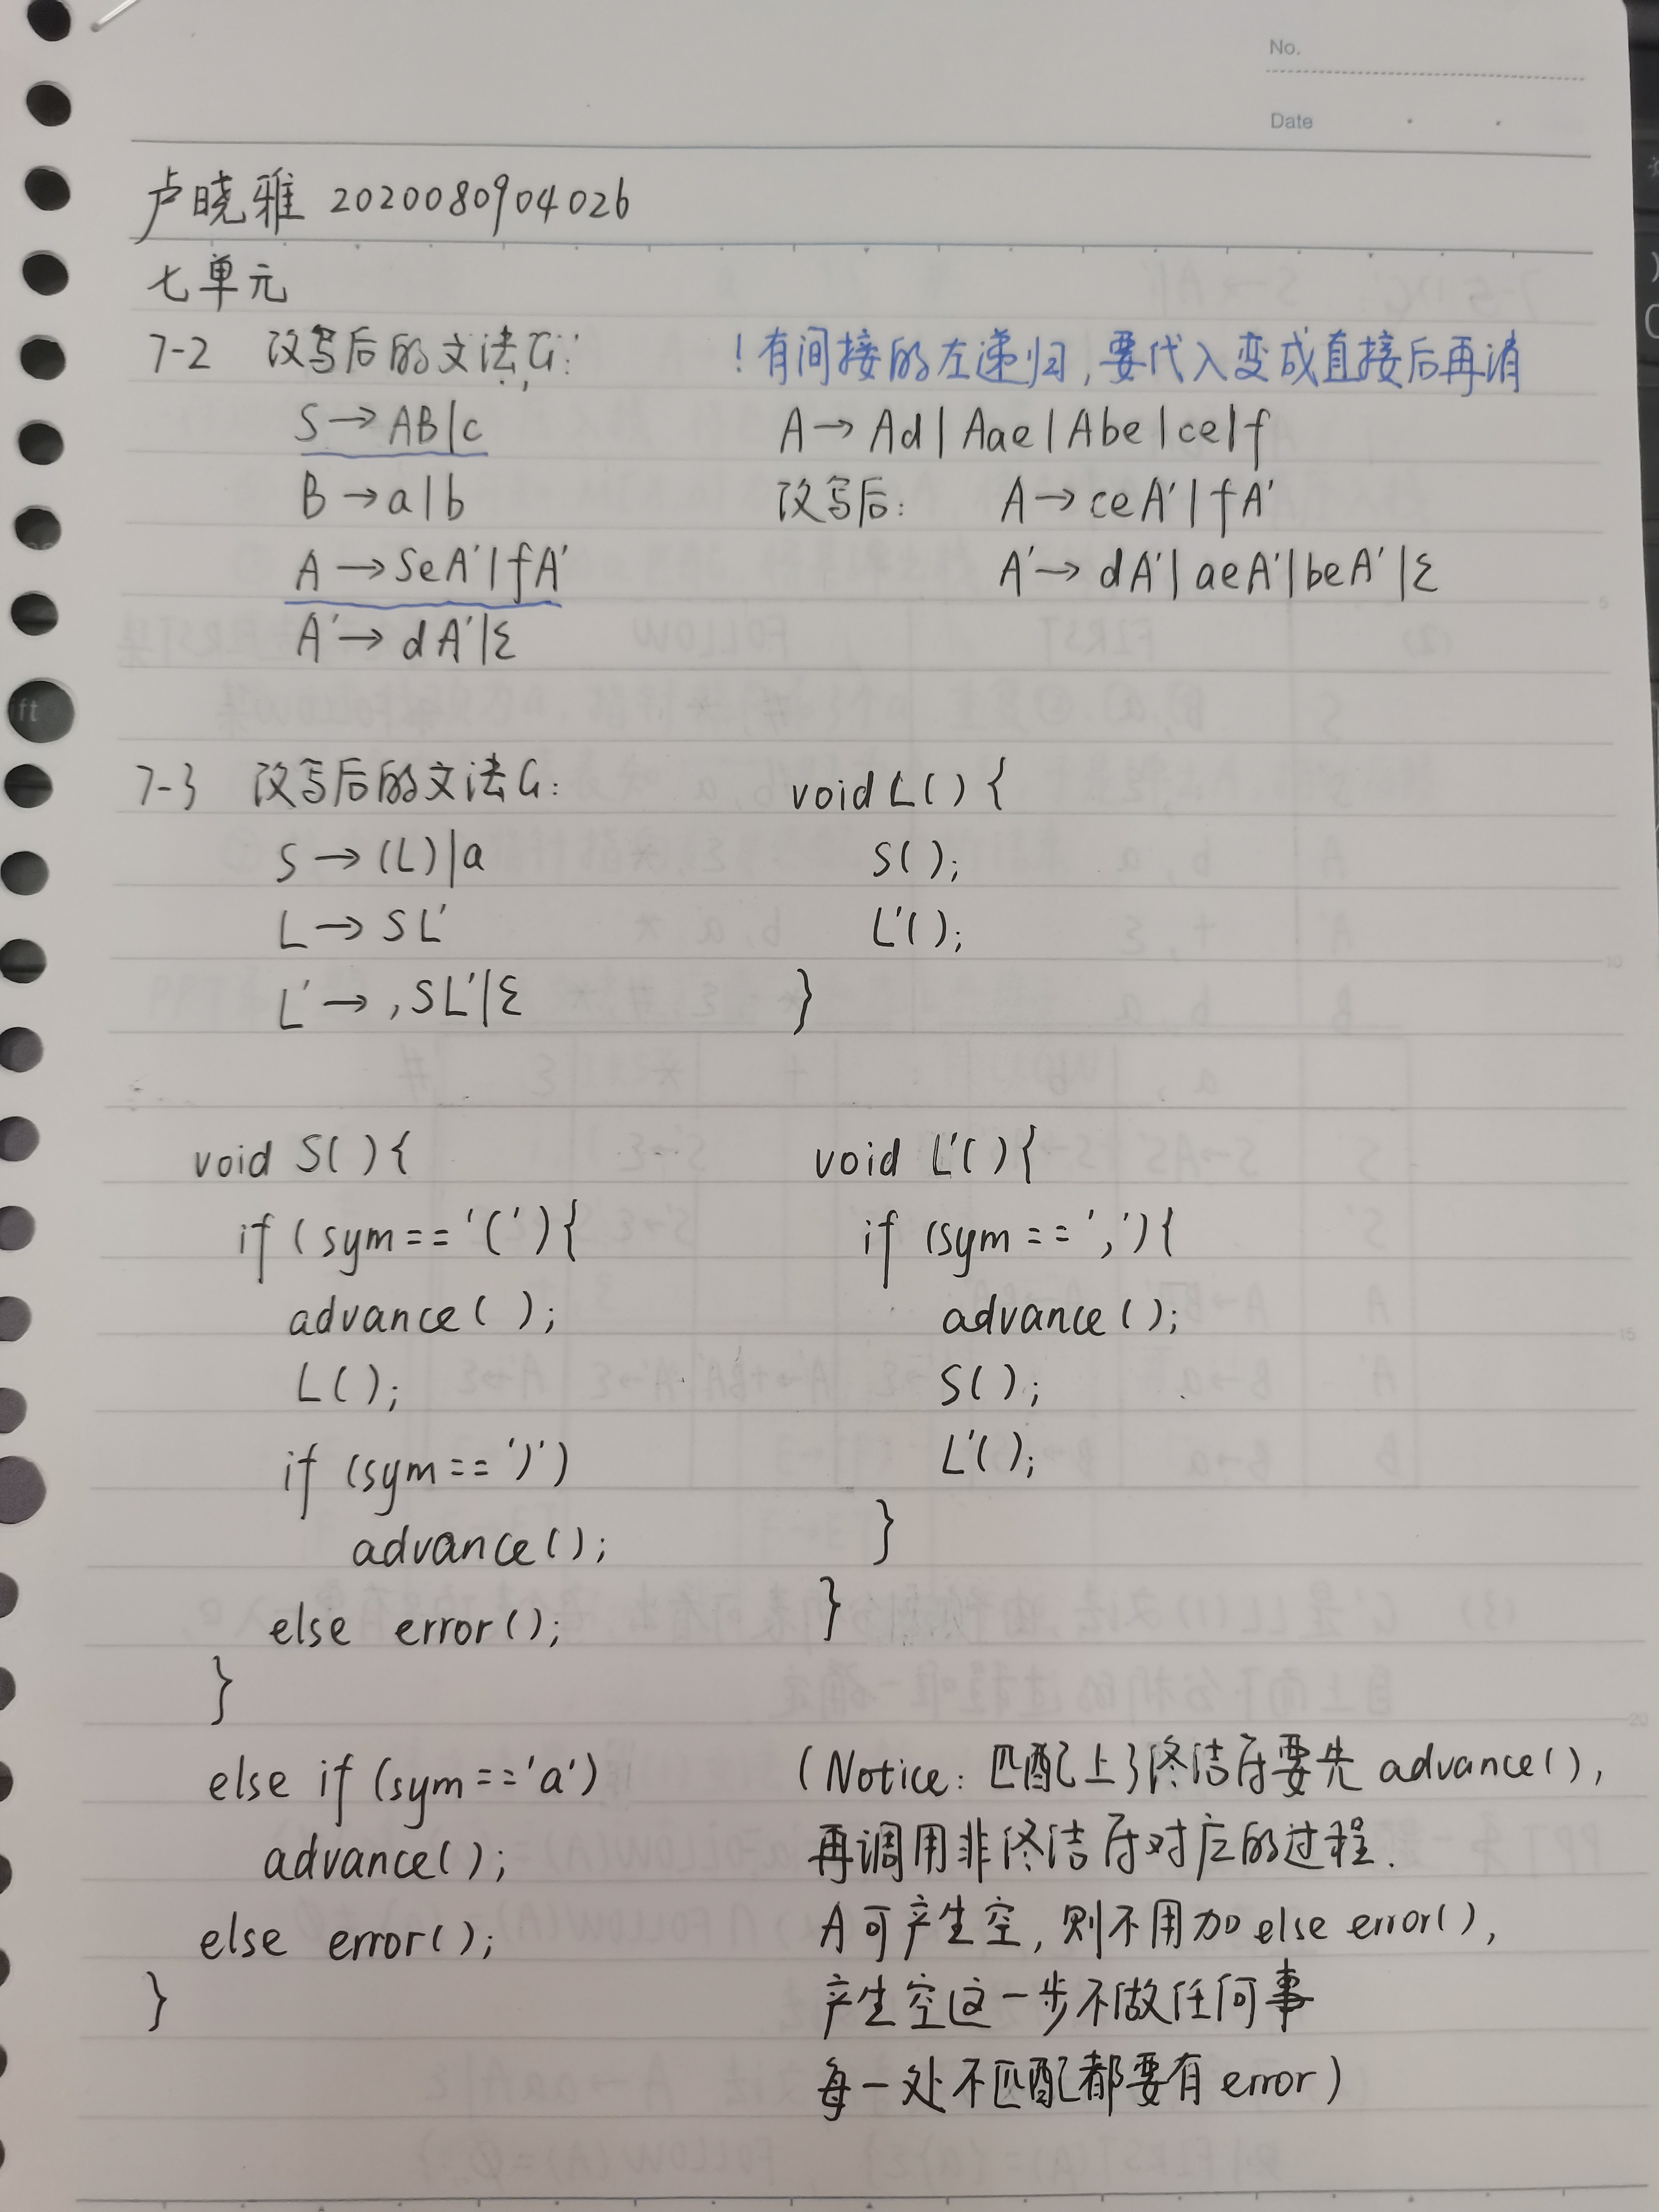 No.
Date
卢晓雅 2020080904026
七单元
7-2 改写后的文法G:
S→AB|c
B→a|b
A→SeA'|fA'
A'→dA'|ε
!有间接的左递归,要代入变成直接后再消
A→Ad|Aae|Abe|ce|f
改写后: A→ceA'|fA'
A'→dA'|aeA'|beA'|ε
7-3 改写后的文法G:
S→(L)|a
L→SL'
L'→,SL'|ε
void L(){
S();
L'();
}
void S(){
if(sym=='('){
advance();
L();
if(sym==')')
advance();
else error();
}
else if(sym=='a')
advance();
else error();
}
void L'(){
if(sym==','){
advance();
S();
L'();
}
}
(Notice: 匹配上了终结符要先advance(),
再调用非终结符对应的过程.
A可产生空,则不用加else error(),
产生空这一步不做任何事
每一处不匹配都要有error)
ft
5
10
15
20